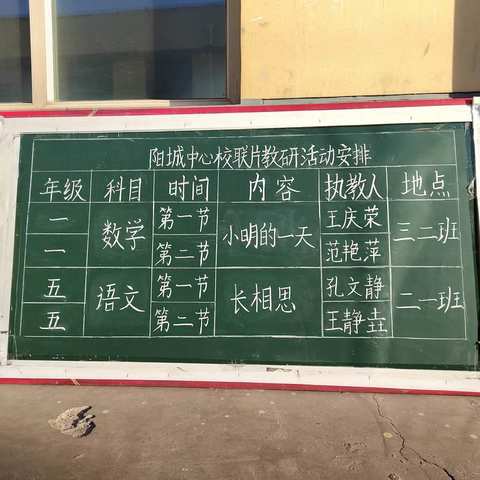 阳城中心校联片教研活动安排
年级 科目 时间 内容 执教人 地点
一 数学 第一节 小明的一天 王庆荣 三二班
一 第二节 范艳萍
五 语文 第一节 长相思 孔文静 二一班
五 第二节 王静垚